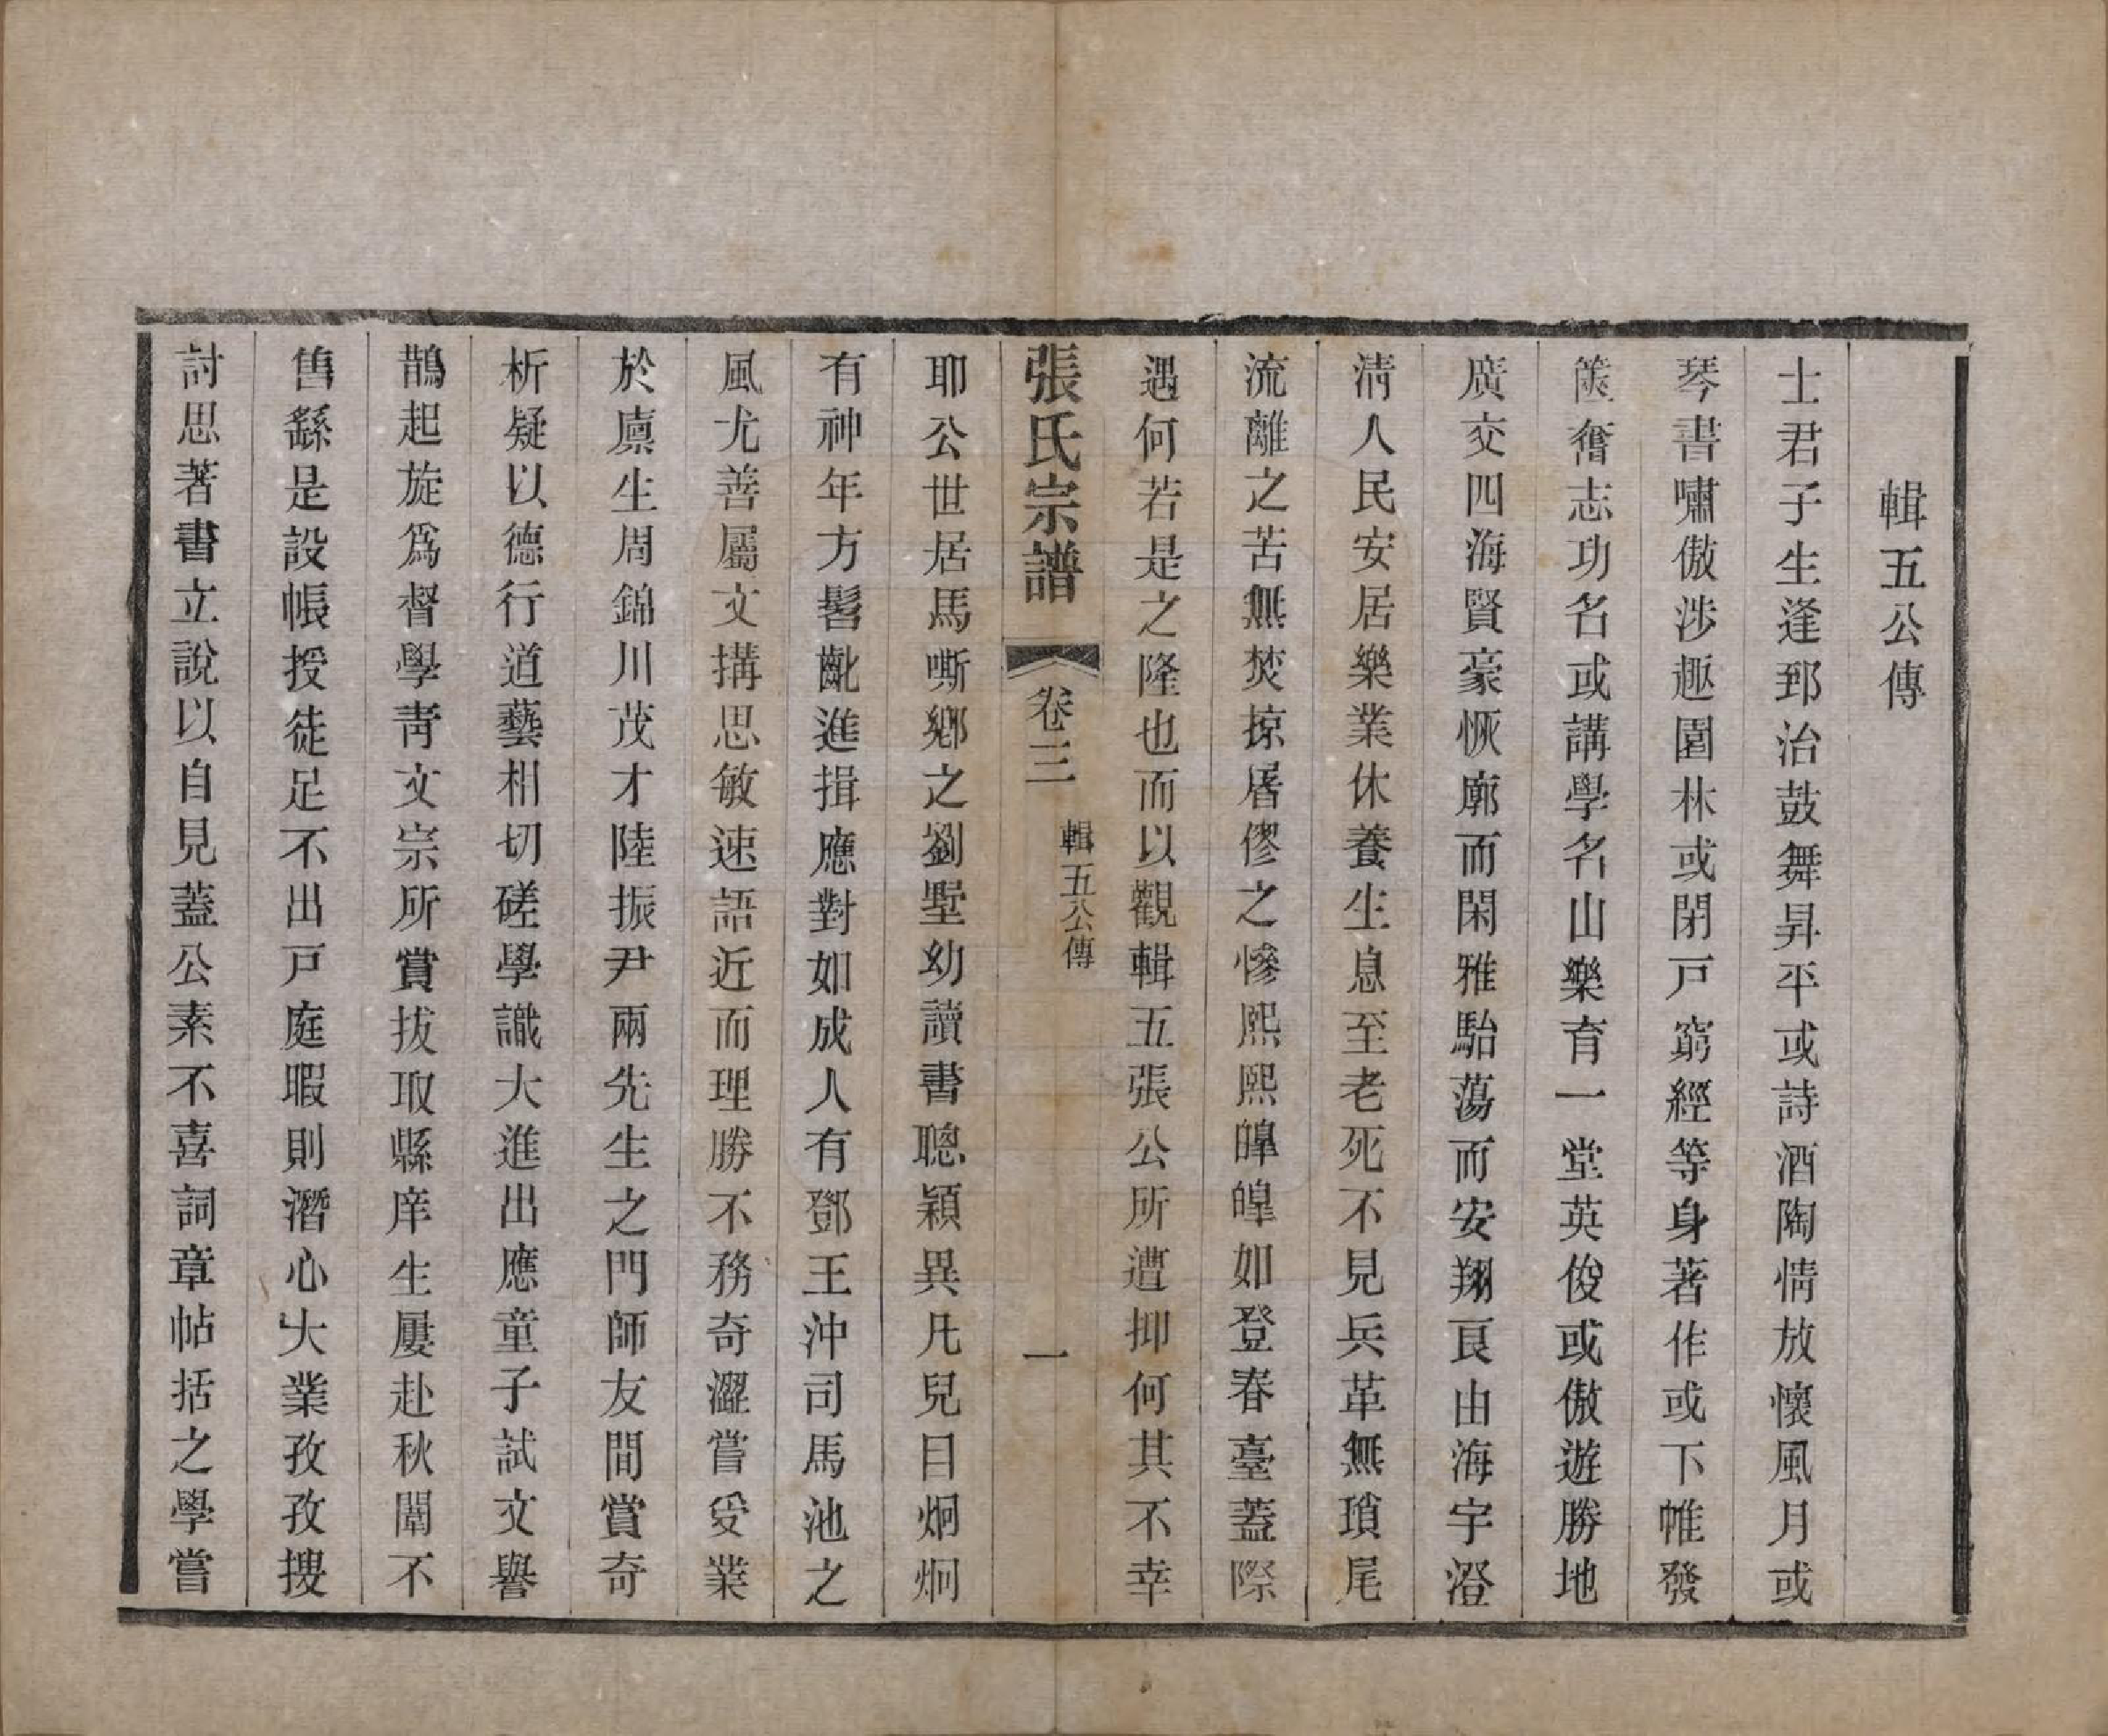 輯五公傳
士君子生逢郅治鼓舞昇平或詩酒陶情放懷風月或
琴書嘯傲涉趣園林或閉戸窮經等身著作或下帷發
篋奮志功名或講學名山樂育一堂英俊或傲遊勝地
廣交四海賢豪恢廓而閑雅駘蕩而安翔良由海宇澄
清人民安居樂業休養生息至老死不見兵革無瑣尾
流離之苦無焚掠屠僇之慘熙熙皥皥如登春臺蓋際
遇何若是之隆也而以觀輯五張公所遭抑何其不幸
張氏宗譜
卷三
輯五公傳
一
耶公世居馬嘶鄉之劉墅幼讀書聰穎異凡兒目炯炯
有神年方髫齔進揖應對如成人有鄧王沖司馬池之
風尤善屬文搆思敏速語近而理勝不務奇澀嘗受業
於廩生周錦川茂才陸振尹兩先生之門師友間賞奇
析疑以德行道藝相切磋學識大進出應童子試文譽
鵲起旋爲督學青文宗所賞拔取縣庠生屢赴秋闈不
售繇是設帳授徒足不出戸庭暇則潛心大業孜孜搜
討思著書立說以自見蓋公素不喜詞章帖括之學嘗